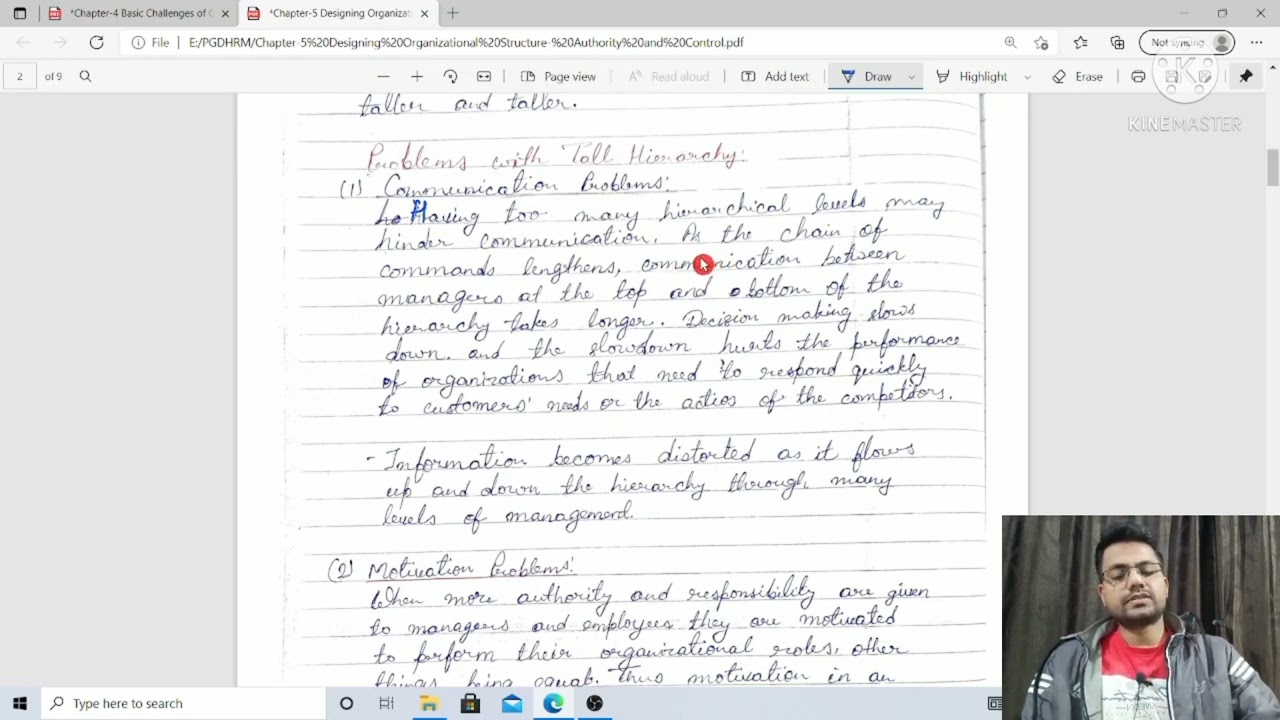 *Chapter-4 Basic Challenges of O
*Chapter-5 Designing Organizat
File
E:/PGDHRM/Chapter-5%20Designing%20Organizational%20Structure-%20Authority%20and%20Control.pdf
Not syncing
2 of 9
Page view
Read aloud
Add text
Draw
Highlight
Erase
K
KINEMASTER
taller and taller.
Problems with Tall Hierarchy:
(1) Communication Problems:
Having too many hierarchical levels may
hinder communication. As the chain of
commands lengthens, communication between
managers at the top and bottom of the
hierarchy takes longer. Decision making slows
down. and the slowdown hurts the performance
of organizations that need to respond quickly
to customers' needs or the actios of the competitors.
- Information becomes distorted as it flows
up and down the hierarchy through many
levels of management.
(2) Motivation Problems:
When more authority and responsibility are given
to managers and employees they are motivated
to perform their organizational roles, other
things being equal. Thus motivation in an
Type here to search